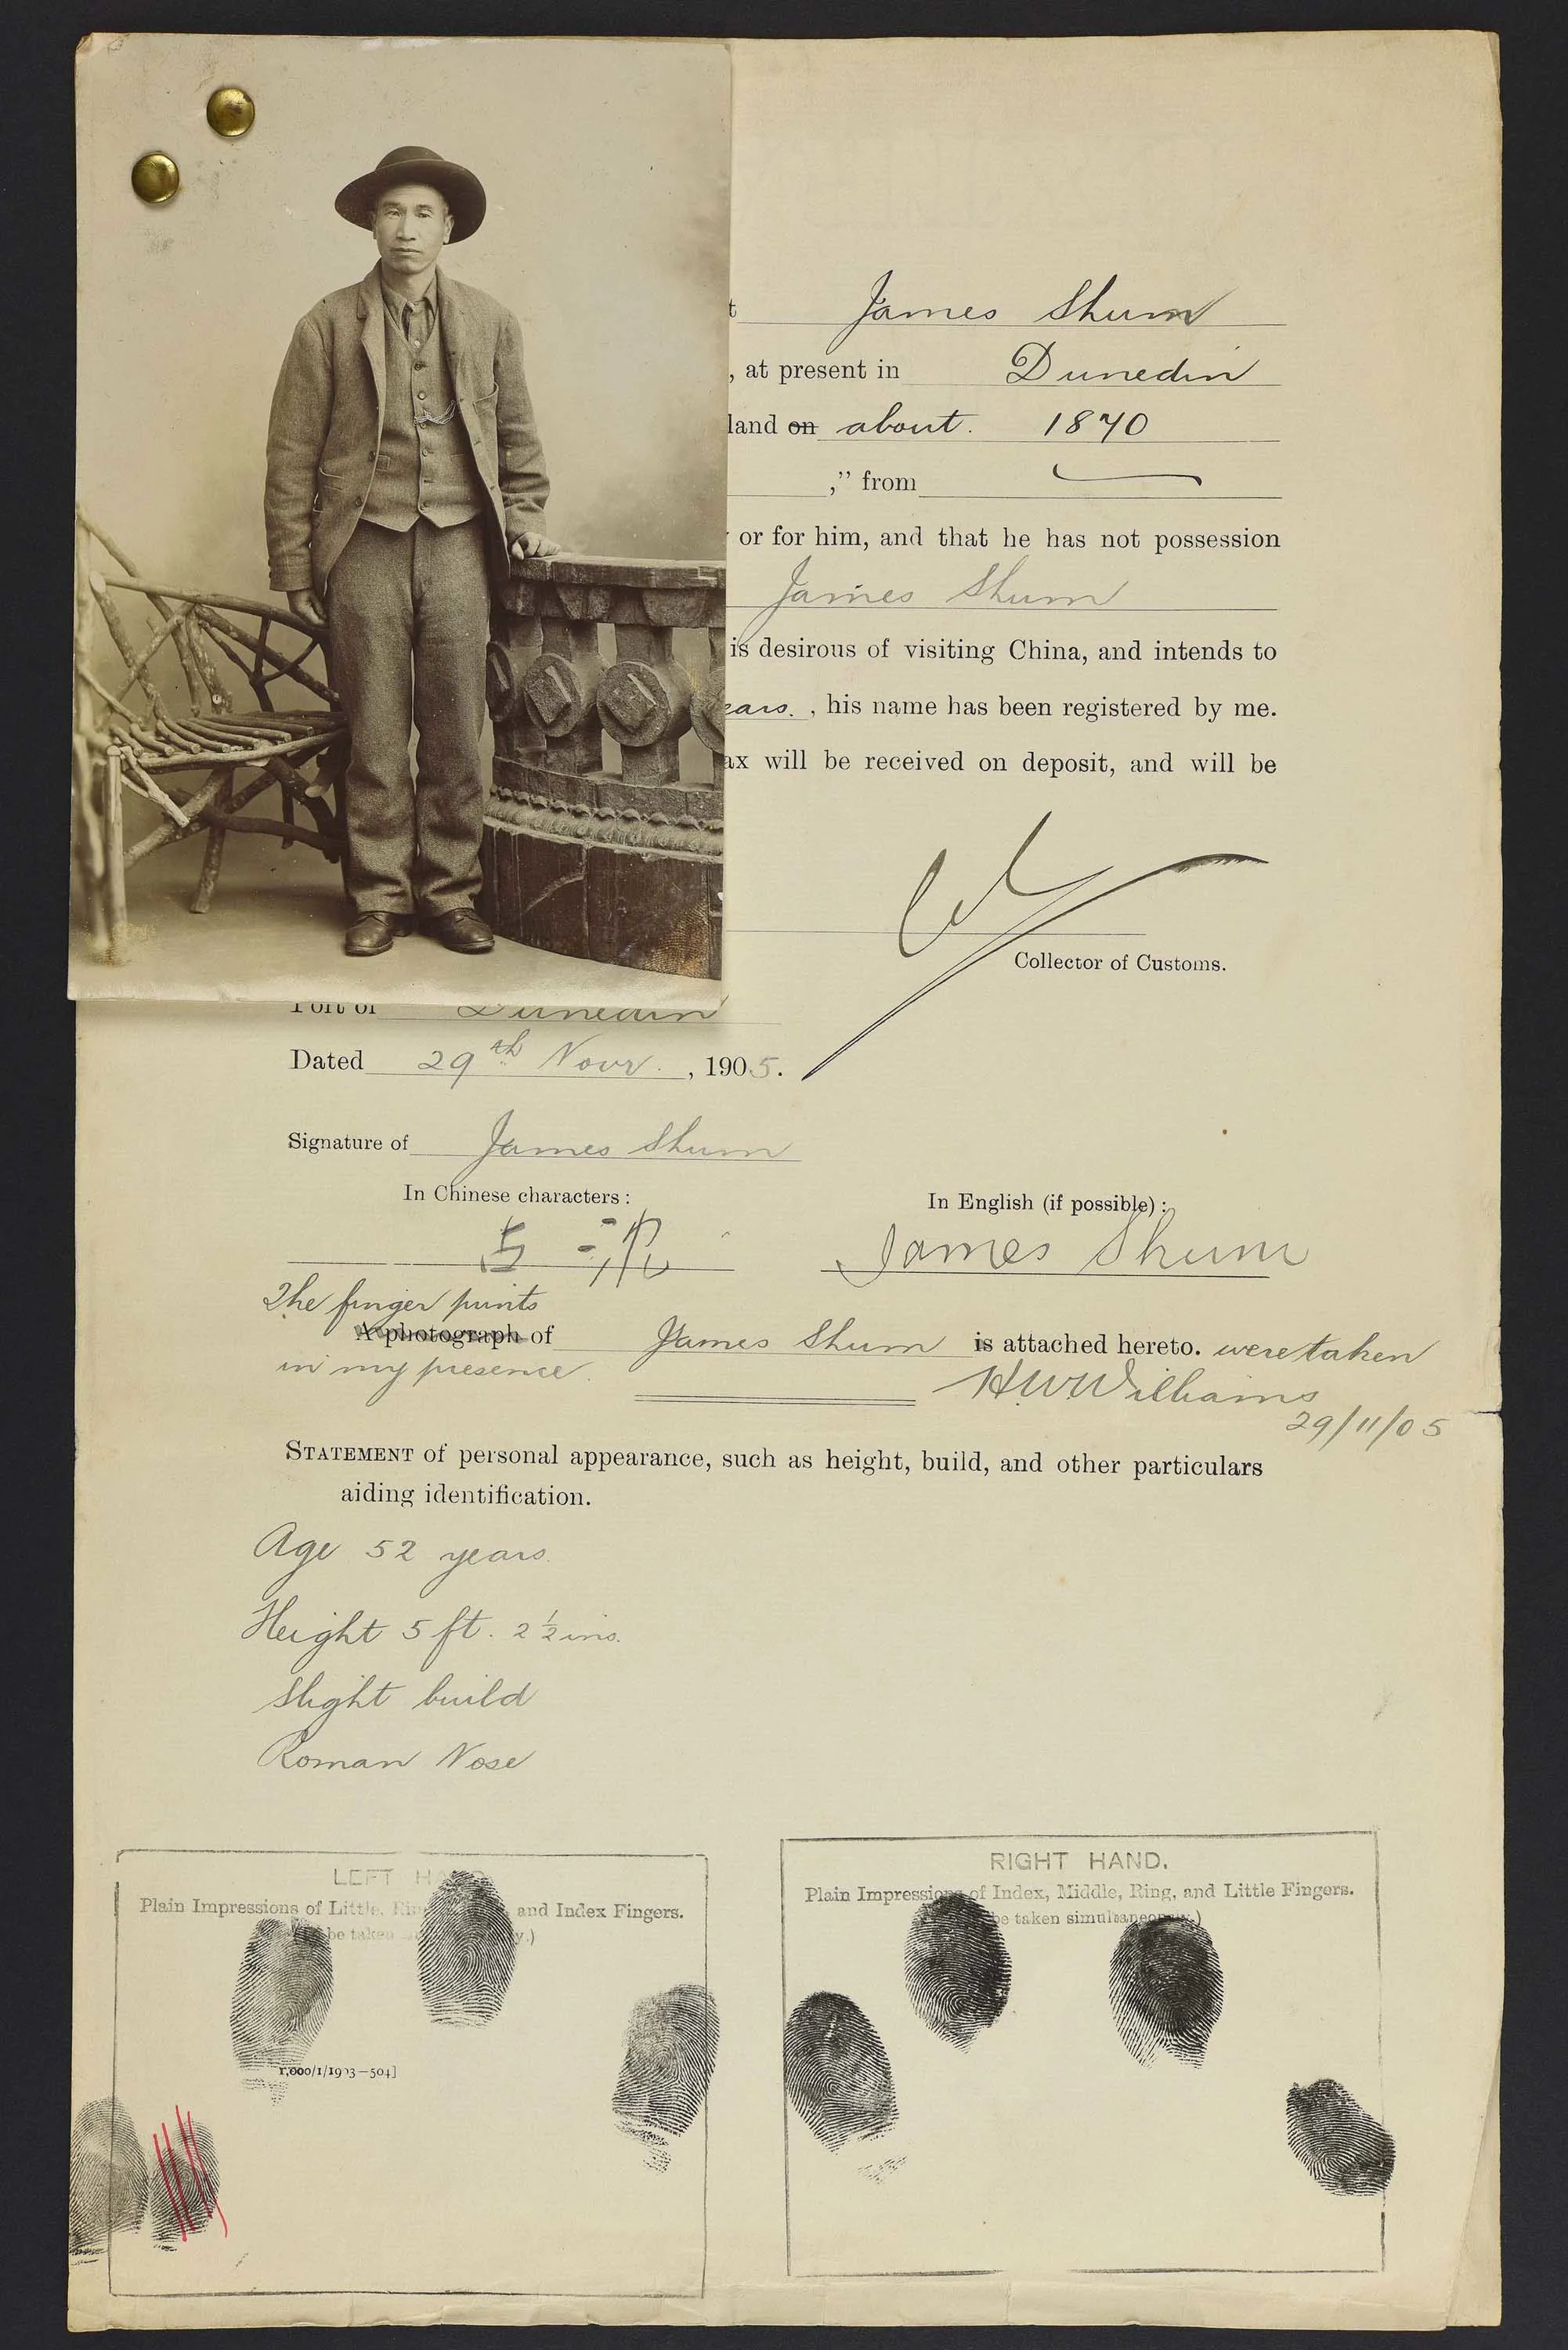 James Shum
, at present in Dunedin
land on about. 1870
," from
or for him, and that he has not possession
James Shum
is desirous of visiting China, and intends to
ears. , his name has been registered by me.
ax will be received on deposit, and will be
Collector of Customs.
Port of Dunedin
Dated 29th Novr. , 1905.
Signature of James Shum
In Chinese characters :
In English (if possible) :
James Shum
The finger prints
A photograph of James Shum is attached hereto. were taken
in my presence.
H.W. Williams
29/11/05
STATEMENT of personal appearance, such as height, build, and other particulars
aiding identification.
Age 52 years.
Height 5 ft. 2 ½ ins.
Slight build
Roman Nose
LEFT HAND.
Plain Impressions of Little, Ring, and Index Fingers.
be taken
RIGHT HAND.
Plain Impressions of Index, Middle, Ring, and Little Fingers.
be taken simultaneously.)
1,000/1/1903—504]